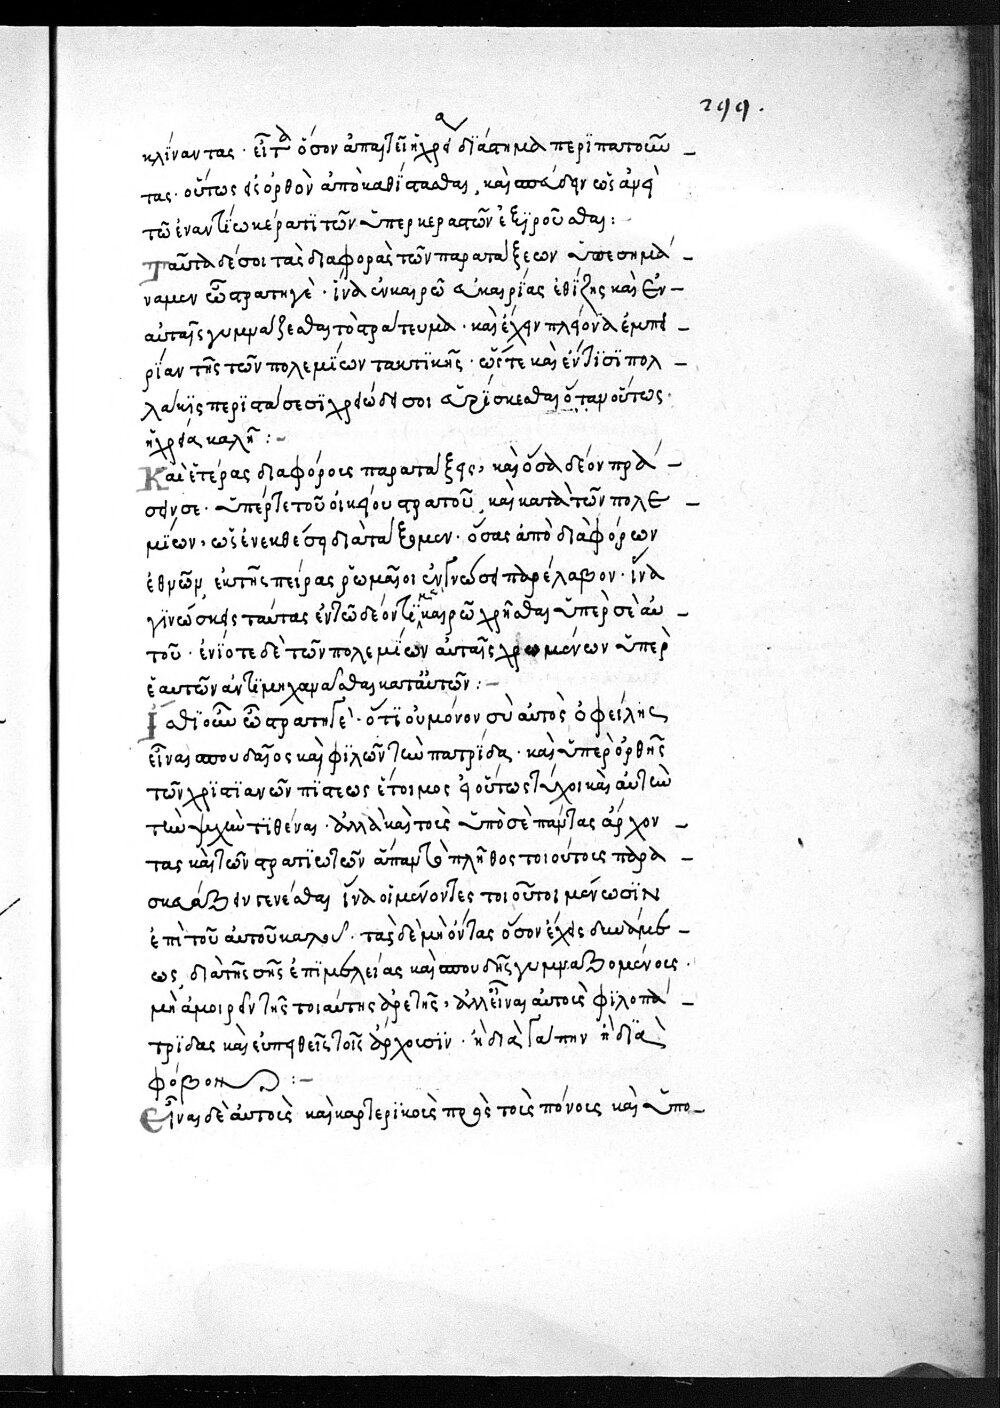 299.
κλίναντας· εἶτα ὅσον ἀπαιτεῖ ἡ χρεία διάστημα περιπατοῦν
τας· οὕτως εἰς ὀρθὸν ἀποκαθίστασθαι, καὶ σπεύδειν ὡς ἀρκεῖ
τῶ ἐναντίω κέρατι τῶν ὑπερκεραστῶν ἐξισοῦσθαι:
Ταῦτα δέ σοι τὰς διαφορὰς τῶν παρατάξεων ὑπεσημά
ναμεν ὦ στρατηγὲ· ἵνα ἐν καιρῶ εὐκαιρίας ἐθίζης καὶ ἐν
αὐταῖς γυμνάζεσθαι τὸ στράτευμα· καὶ ἔχειν πλείονα ἐμπει
ρίαν τῆς τῶν πολεμίων τακτικῆς· ὥστε καὶ ἔν τισι πολ
λάκις περιστάσεσι χρειώδει σοι εὑρίσκεσθαι ὅταν οὕτως
ἡ χρεία καλῆ:
Καὶ ἑτέρας διαφόροις παρατάξεις, καὶ ὅσα δέον πρά
σειν σε· ὑπέρ τε τοῦ οἰκείου στρατοῦ, καὶ κατὰ τῶν πολε
μίων, ὡς ἐν ἐκθέσει διατάξομεν· ὅσας ἀπὸ διαφόρων
ἐθνῶν, ἐκ τῆς πείρας ῥωμαῖοι ἐν γνώσει παρέλαβον· ἵνα
γινώσκεις ταύτας ἐν τῶ δέοντι καιρῶ χρῆσθαι ὑπὲρ σὲ αὐ
τοῦ· ἐνίοτε δὲ τῶν πολεμίων αὐταῖς χρωμένων ὑπὲρ
ἑαυτῶν ἀντιμηχανᾶσθαι κατ αὐτῶν:
Ἴσθι οὖν ὦ στρατηγὲ· ὅτι οὐ μόνον σὺ αὐτὸς ὀφείλης
εἶναι σπουδαῖος καὶ φιλῶν τὴν πατρίδα· καὶ ὑπὲρ ὀρθῆς
τῶν χριστιανῶν πίστεως ἕτοιμος εἰ οὕτως τύχοι καὶ αὐτὴν
τὴν ψυχὴν τιθέναι· ἀλλὰ καὶ τοὺς ὑπὸ σὲ πάντας ἄρχον
τας καὶ τῶν στρατιωτῶν ἅπαν τὸ πλῆθος τοιούτοις παρα
σκευάζειν γενέσθαι ἵνα οἱ μὲν ὄντες τοιοῦτοι μένωσιν
ἐπὶ τοῦ αὐτοῦ καλοῦ· τὰς δὲ μὴ ὄντας ὅσον ἔχεις δυνάμε
ως, διὰ τῆς σῆς ἐπιμελείας καὶ σπουδῆς γυμναζομένοις·
μὴ ἀμοιρεῖν τῆς τοιαύτης ἀρετῆς, ἀλλ εἶναι αὐτοὺς φιλοπά
τριδας καὶ εὐπειθεῖς τοῖς ἄρχουσιν· ἢ δι ἀγάπην ἢ διὰ
φόβον:
Εἶναι δὲ αὐτοὺς καὶ καρτερικοὺς πρὸς τοὺς πόνοις καὶ ὑπο